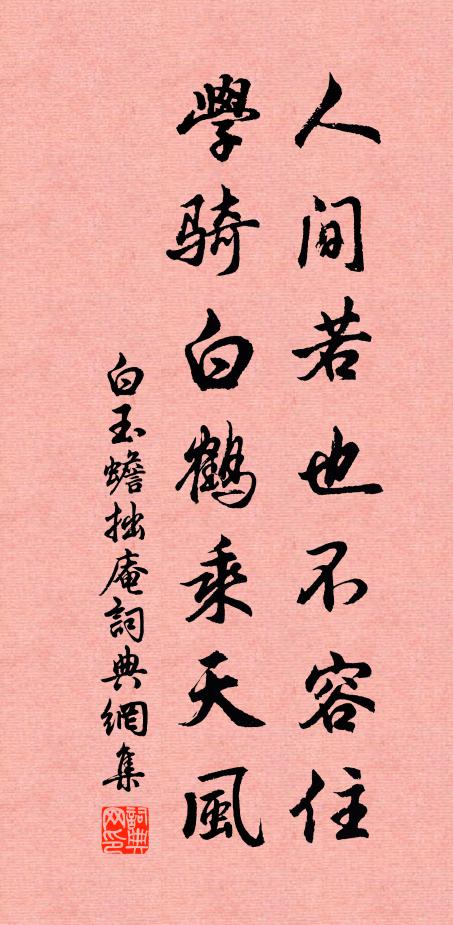 人間若也不容住
學骑白鶴乘天風
白玉蟾拙庵詞典網集
詞典网印